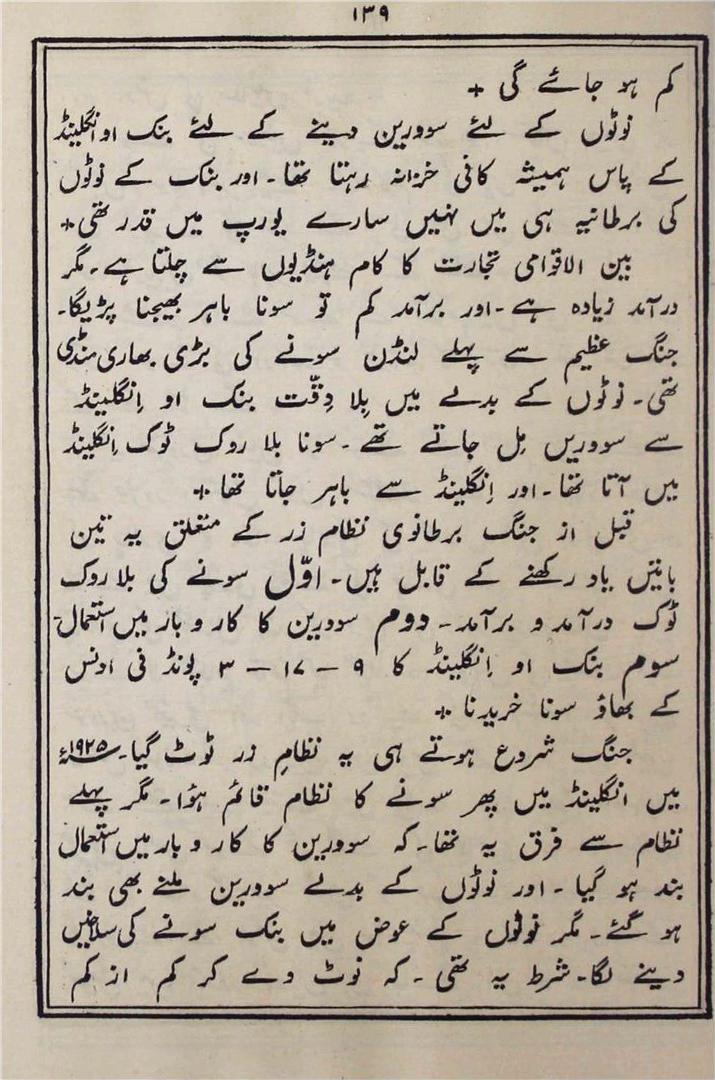 ۱۳۹
کم ہو جائے گی +
نوٹوں کے لئے سوورین دینے کے لئے بنک او انگلینڈ
کے پاس ہمیشہ کافی خزانہ رہتا تھا۔ اور بنک کے نوٹوں
کی برطانیہ ہی میں نہیں سارے یورپ میں قدر تھی +
بین الاقوامی تجارت کا کام ہنڈیوں سے چلتا ہے۔ مگر
درآمد زیادہ ہے۔ اور برآمد کم تو سونا باہر بھیجنا پڑیگا۔
جنگ عظیم سے پہلے لنڈن سونے کی بڑی بھاری منڈی
تھی۔ نوٹوں کے بدلے میں بِلا دِقّت بنک او اِنگلینڈ
سے سووریں مِل جاتے تھے۔ سونا بلا روک ٹوک اِنگلینڈ
میں آتا تھا۔ اور اِنگلینڈ سے باہر جاتا تھا +
قبل از جنگ برطانوی نظام زر کے متعلق یہ تین
باتیں یاد رکھنے کے قابل ہیں۔ اوّل سونے کی بلا روک
ٹوک درآمد و برآمد۔ دوم سوورین کا کار و بار میں استعمال۔
سوم بنک او اِنگلینڈ کا ۹ – ۱۷ – ۳ پونڈ فی اونس
کے بھاؤ سونا خریدنا +
جنگ شروع ہوتے ہی یہ نظامِ زر ٹوٹ گیا۔ ۱۹۲۵ء
میں انگلینڈ میں پھر سونے کا نظام قائم ہؤا۔ مگر پہلے
نظام سے فرق یہ تھا۔ کہ سوورین کا کار و بار میں استعمال
بند ہو گیا۔ اور نوٹوں کے بدلے سوورین ملنے بھی بند
ہو گئے۔ مگر نوٹوں کے عوض میں بنک سونے کی سلاخیں
دینے لگا۔ شرط یہ تھی۔ کہ نوٹ دے کر کم از کم